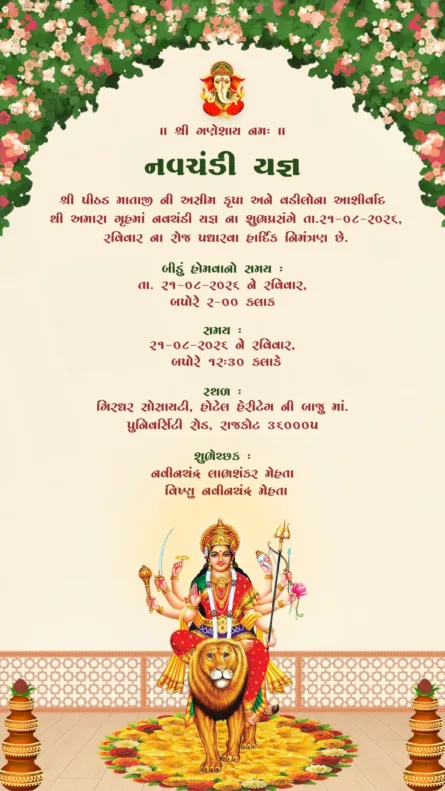 ॥ શ્રી ગણેશાય નમઃ ॥
નવચંડી યજ્ઞ
શ્રી પીઠડ માતાજી ની અસીમ કૃપા અને વડીલોના આશીર્વાદ
થી અમારા ગૃહમાં નવચંડી યજ્ઞ ના શુભપ્રસંગે તા.૨૧-૦૮-૨૦૨૬,
રવિવાર ના રોજ પધારવા હાર્દિક નિમંત્રણ છે.
બીડું હોમવાનો સમય :
તા. ૨૧-૦૮-૨૦૨૬ ને રવિવાર,
બપોરે ૨-૦૦ કલાક
સમય :
૨૧-૦૮-૨૦૨૬ ને રવિવાર,
બપોરે ૧૨:૩૦ કલાકે
સ્થળ :
ગિરધર સોસાયટી, હોટેલ હેરીટેગ ની બાજુ માં.
યુનિવર્સિટી રોડ, રાજકોટ ૩૬૦૦૦૫
શુભેચ્છક :
નવીનચંદ્ર લાભશંકર મેહતા
વિષ્ણુ નવીનચંદ્ર મેહતા